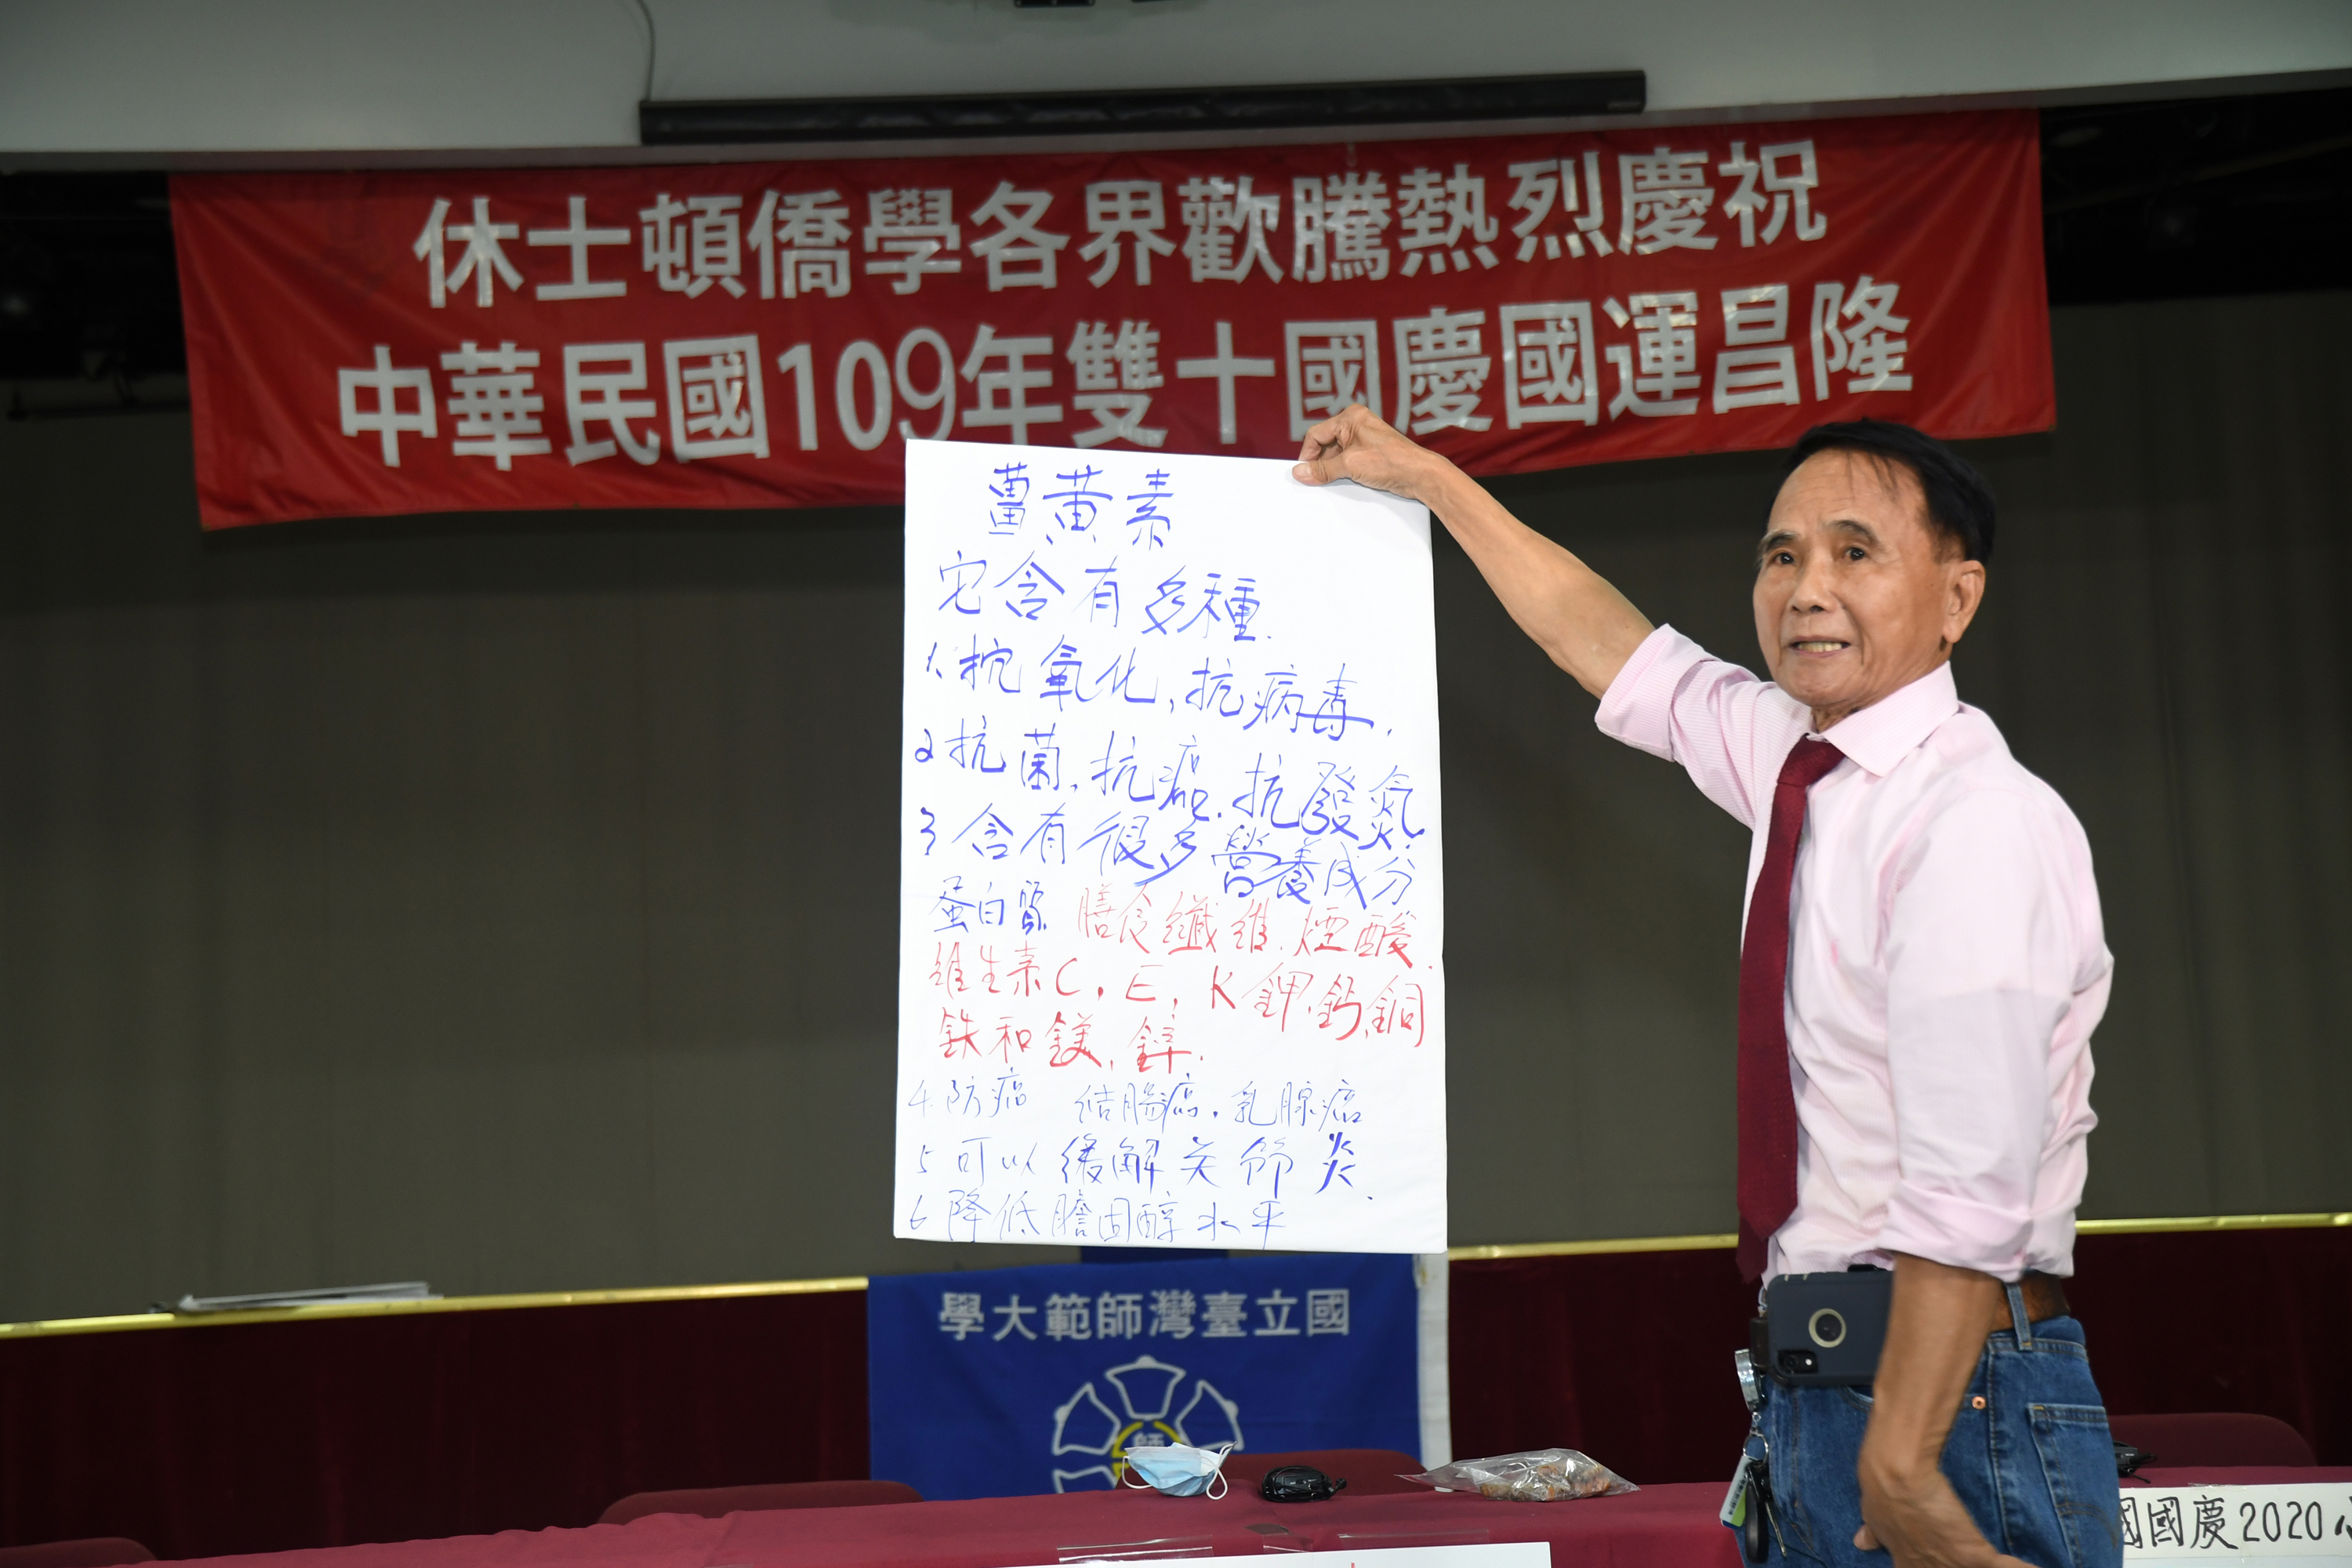 休士頓僑學各界歡騰熱烈慶祝
中華民國109年雙十國慶國運昌隆
薑黃素
它含有多種.
1.抗氧化,抗病毒.
2抗菌.抗癌.抗發氣.
3含有很多營養成分
蛋白質 膳食纖維.煙酸.
維生素C,E,K鉀.鈣,銅
鉄和鎂,鋅.
4.防癌 結腸癌.乳腺癌
5可以緩解关節炎.
6降低膽固醇水平
學大範師灣臺立國
師
國慶2020